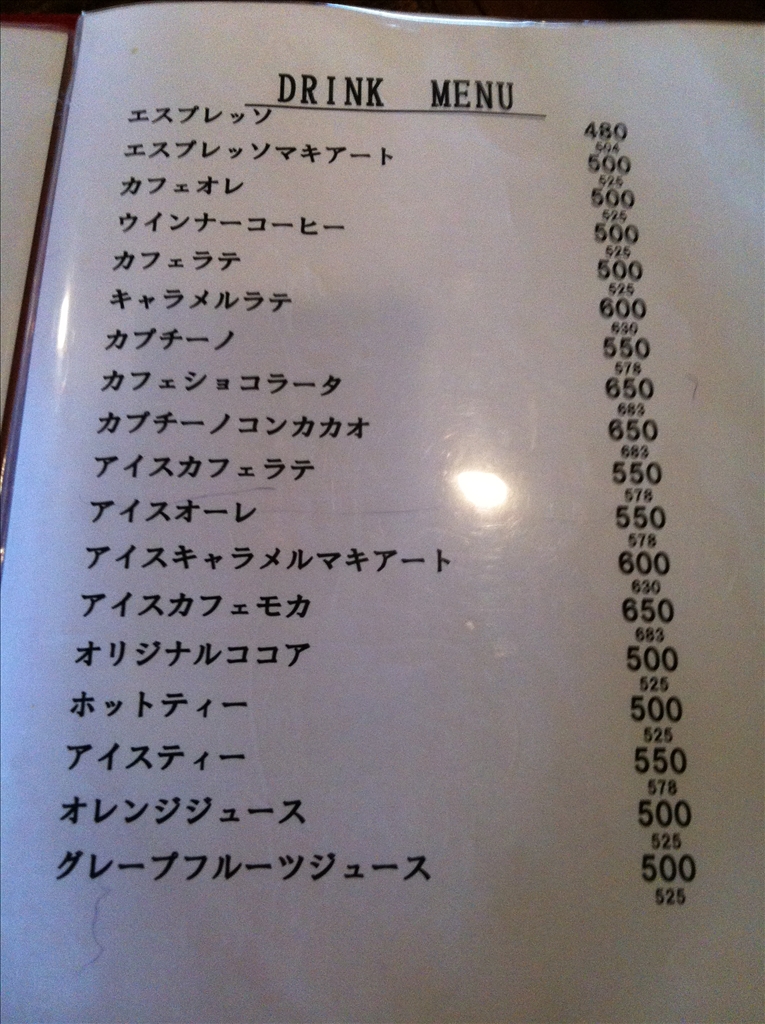 DRINK MENU
エスプレッソ 480
504
エスプレッソマキアート 500
525
カフェオレ 500
525
ウインナーコーヒー 500
525
カフェラテ 500
525
キャラメルラテ 600
630
カプチーノ 550
578
カフェショコラータ 650
683
カプチーノコンカカオ 650
683
アイスカフェラテ 550
578
アイスオーレ 550
578
アイスキャラメルマキアート 600
630
アイスカフェモカ 650
683
オリジナルココア 500
525
ホットティー 500
525
アイスティー 550
578
オレンジジュース 500
525
グレープフルーツジュース 500
525